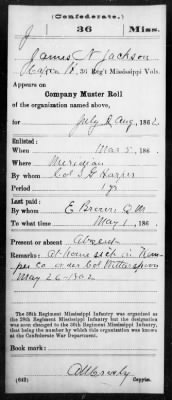 (Confederate.)
J 36 Miss.
James N Jackson
36 Reg't Mississippi Vols.
Appears on
Company Muster Roll
of the organization named above,
for July & Aug, 1862.
Enlisted:
When Mar 5, 186 .
Where Meridian
By whom Col J. H.
Period 1 yr
Last paid:
By whom E Brown Q M
To what time May 1, 186 .
Present or absent Absent
Remarks: At home sick in Kem-
per Co order Col Witherspoon
May 26-1862
The 38th Regiment Mississippi Infantry was organized as the
36th Regiment Mississippi Infantry but the designation
was soon changed to the 38th Regiment Mississippi Infantry,
that being the number by which this organization was known at
the Confederate War Department.
Book mark:
(642) Copyist.